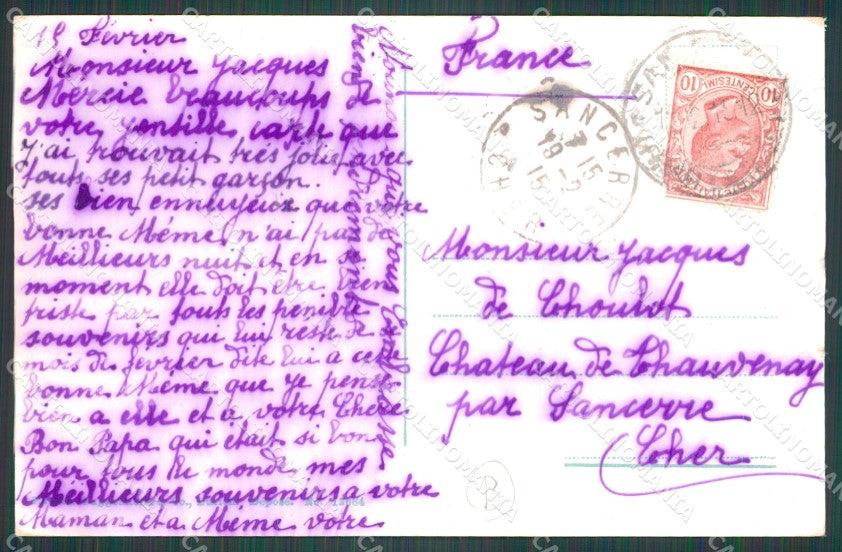 15 Février
Monsieur Jacques
Mercie beaucoups de
votre gentille carte que
J'ai trouvait très jolie avec
touts ses petit garçon.
ses bien ennuyeux que votre
bonne Méme n'ai pas de
Meillieurs nuit et en se
moment elle doit être bien
triste par touts les penible
souvenirs qui lui reste de
mois de fevrier dite lui a cette
bonne Méme que je pense
bien a elle et a votre Chere
Bon Papa qui était si bon
pour tous le monde mes
Meillieurs souvenirs a votre
Maman et a Méme votre
Nounou qui vous embrasse
bien
France
10 CENTESIMI 10
SANCERRE
15
19-2
15
CHER
Monsieur Jacques
de Choulot
Chateau de Chauvenay
par Sancerre
Cher
B
CARTOLINOMANIA